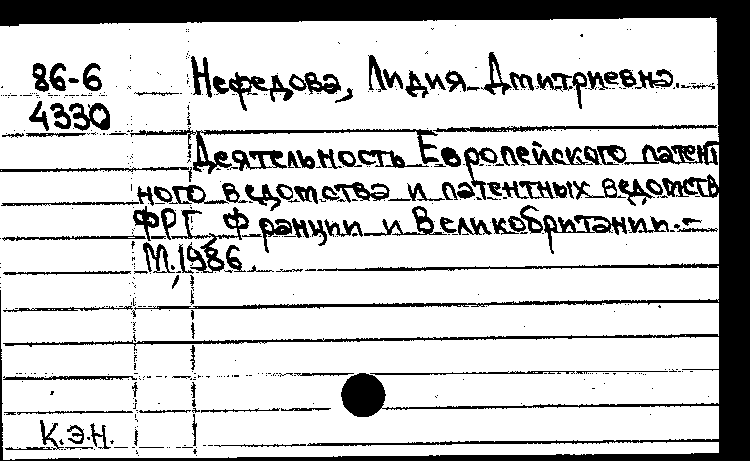 86-6 Нефедова, Лидия Дмитриевна.
4330
Деятельность Европейского патент
ного ведомства и патентных ведомств
ФРГ, Франции и Великобритании.-
М., 1986.
К.Э.Н.